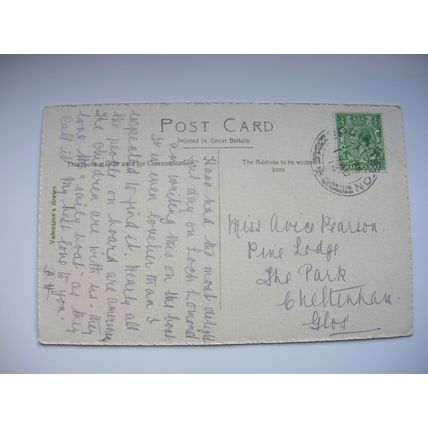 POST CARD
Printed in Great Britain
This space may be used for Communication
The Address to be written here
Valentine's Series
I have had the most delight
ful day on Loch Lomond
am writing this on the boat
It is even lovelier than I
expected to find it. Nearly all
the people on board are american
The children are with us. they
love the "saily boat" as they
call it My best love to you.
Miss Avice Pearson
Pine Lodge
The Park
Cheltenham
Glos